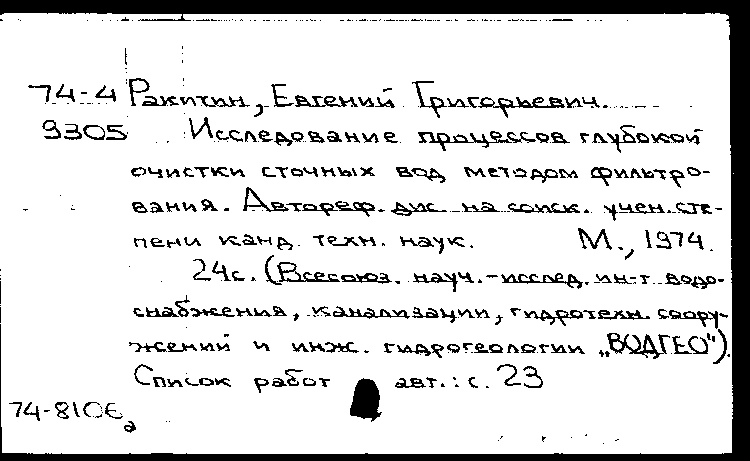 74-4 Ракитин, Евгений Григорьевич.
9305 Исследование процессов глубокой
очистки сточных вод методом фильтро-
вания. Автореф. дис. на соиск. учен. сте-
пени канд. техн. наук. М., 1974.
24с. (Всесоюз. науч.-исслед. ин-т водо-
снабжения, канализации, гидротехн. соору-
жений и инж. гидрогеологии „ВОДГЕО").
Список работ авт.: с. 23
74-8106а